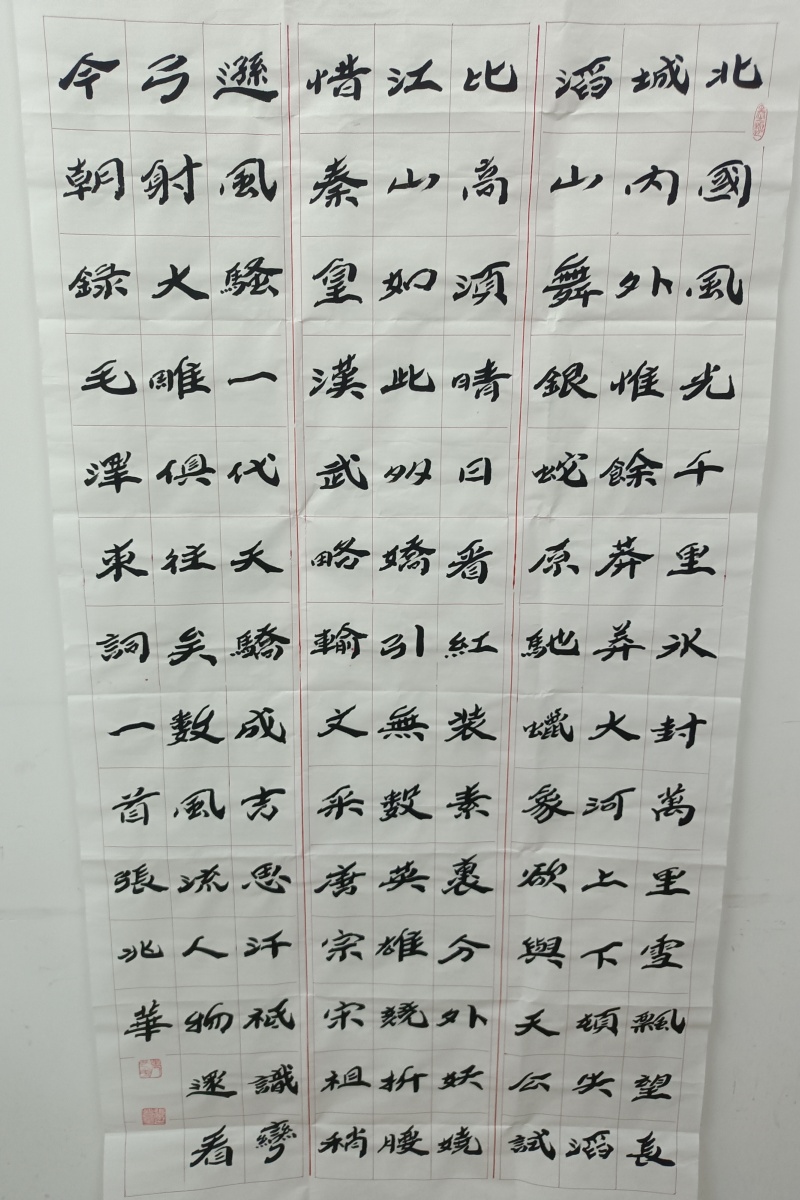 北國風光千里冰封萬里雪飄望長
城內外惟餘莽莽大河上下頓失滔
滔山舞銀蛇原馳蠟象欲與天公試
比高須晴日看紅装素裹分外妖嬈
江山如此多嬌引無數英雄競折腰
惜秦皇漢武略輸文采唐宗宋祖稍
遜風騷一代天驕成吉思汗祗識彎
弓射大雕俱往矣數風流人物還看
今朝錄毛澤東詞一首張兆華